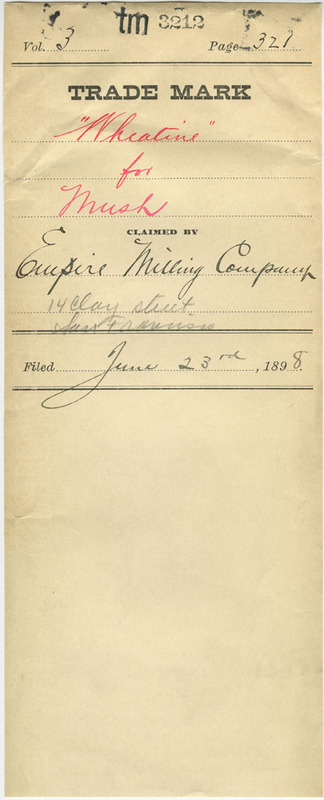 tm 3212
Vol. 3 Page 327
TRADE MARK
"Wheatine"
for
Mush
CLAIMED BY
Empire Milling Company
14 Clay street
San Francisco
Filed June 23rd, 1898